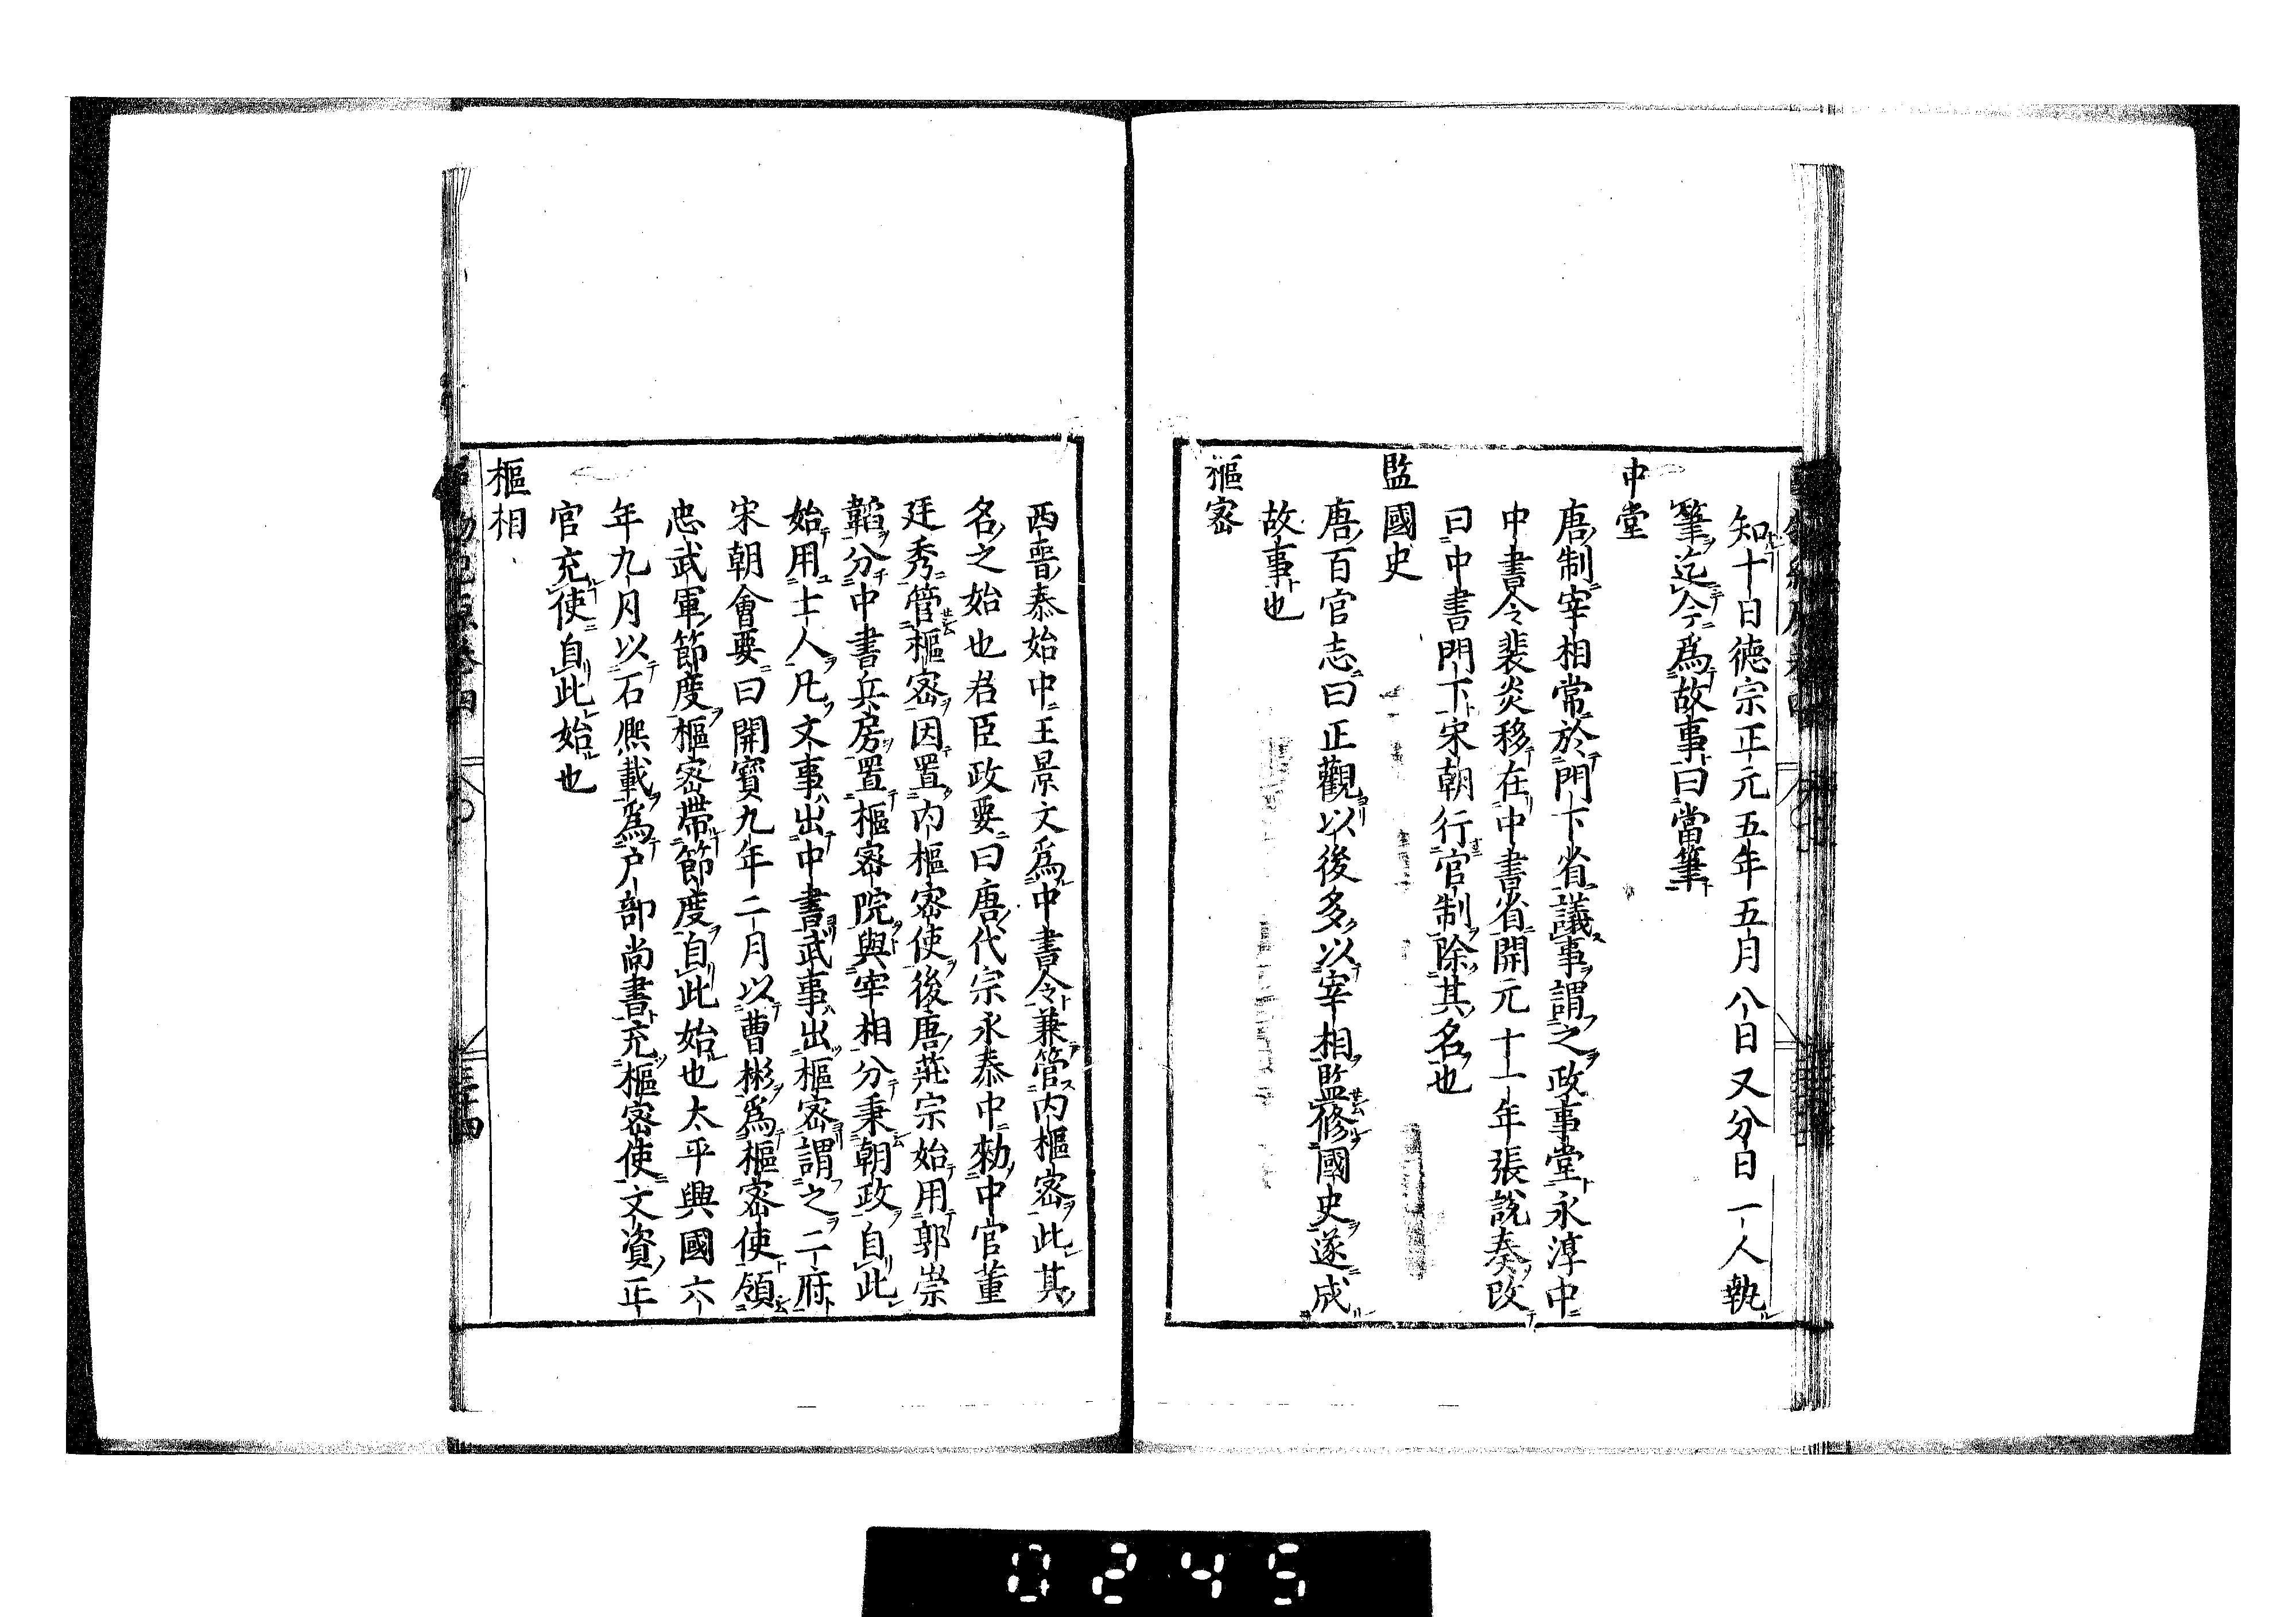 知十日德宗正元五年五月八日又分日一人執
筆迄今爲故事曰當筆
中堂
唐制宰相常於門下省議事謂之政事堂永淳中
中書令裴炎移在中書省開元十一年張說奏改
曰中書門下宋朝行官制除其名也
監國史
唐百官志曰正觀以後多以宰相監修國史遂成
故事也
樞密
西晉泰始中王景文爲中書令兼管內樞密此其
名之始也君臣政要曰唐代宗永泰中勑中官董
廷秀管樞密因置內樞密使後唐莊宗始用郭崇
韜分中書兵房置樞密院與宰相分秉朝政自此
始用士人凡文事出中書武事出樞密謂之二府
宋朝會要曰開寶九年二月以曹彬爲樞密使領
忠武軍節度樞密帶節度自此始也太平興國六
年九月以石熈載爲戶部尚書充樞密使文資正
官充使自此始也
樞相
三十四
0245